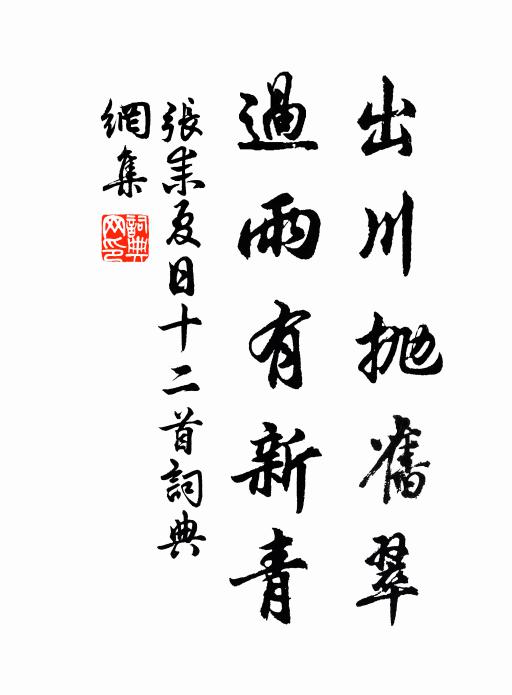 出川抛舊翠
過雨有新青
張耒夏日十二首詞典
網集
詞典
网印